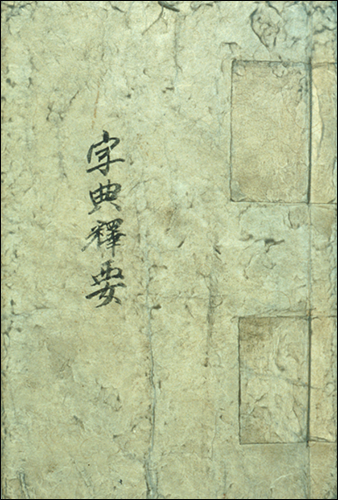 字典釋要